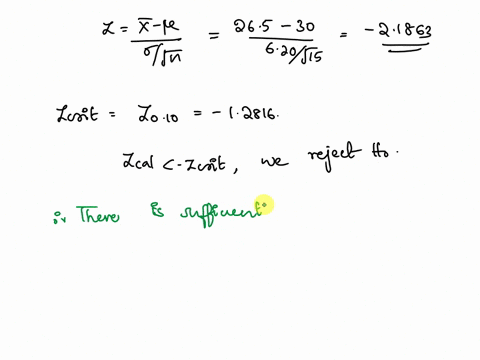 Z = x̄-μ / σ/√n = 26.5 - 30 / 6.20/√15 = -2.1863
Zcrit = Z0.10 = -1.2816.
Zcal < -Zcrit, we reject H0.
∴ There is sufficient